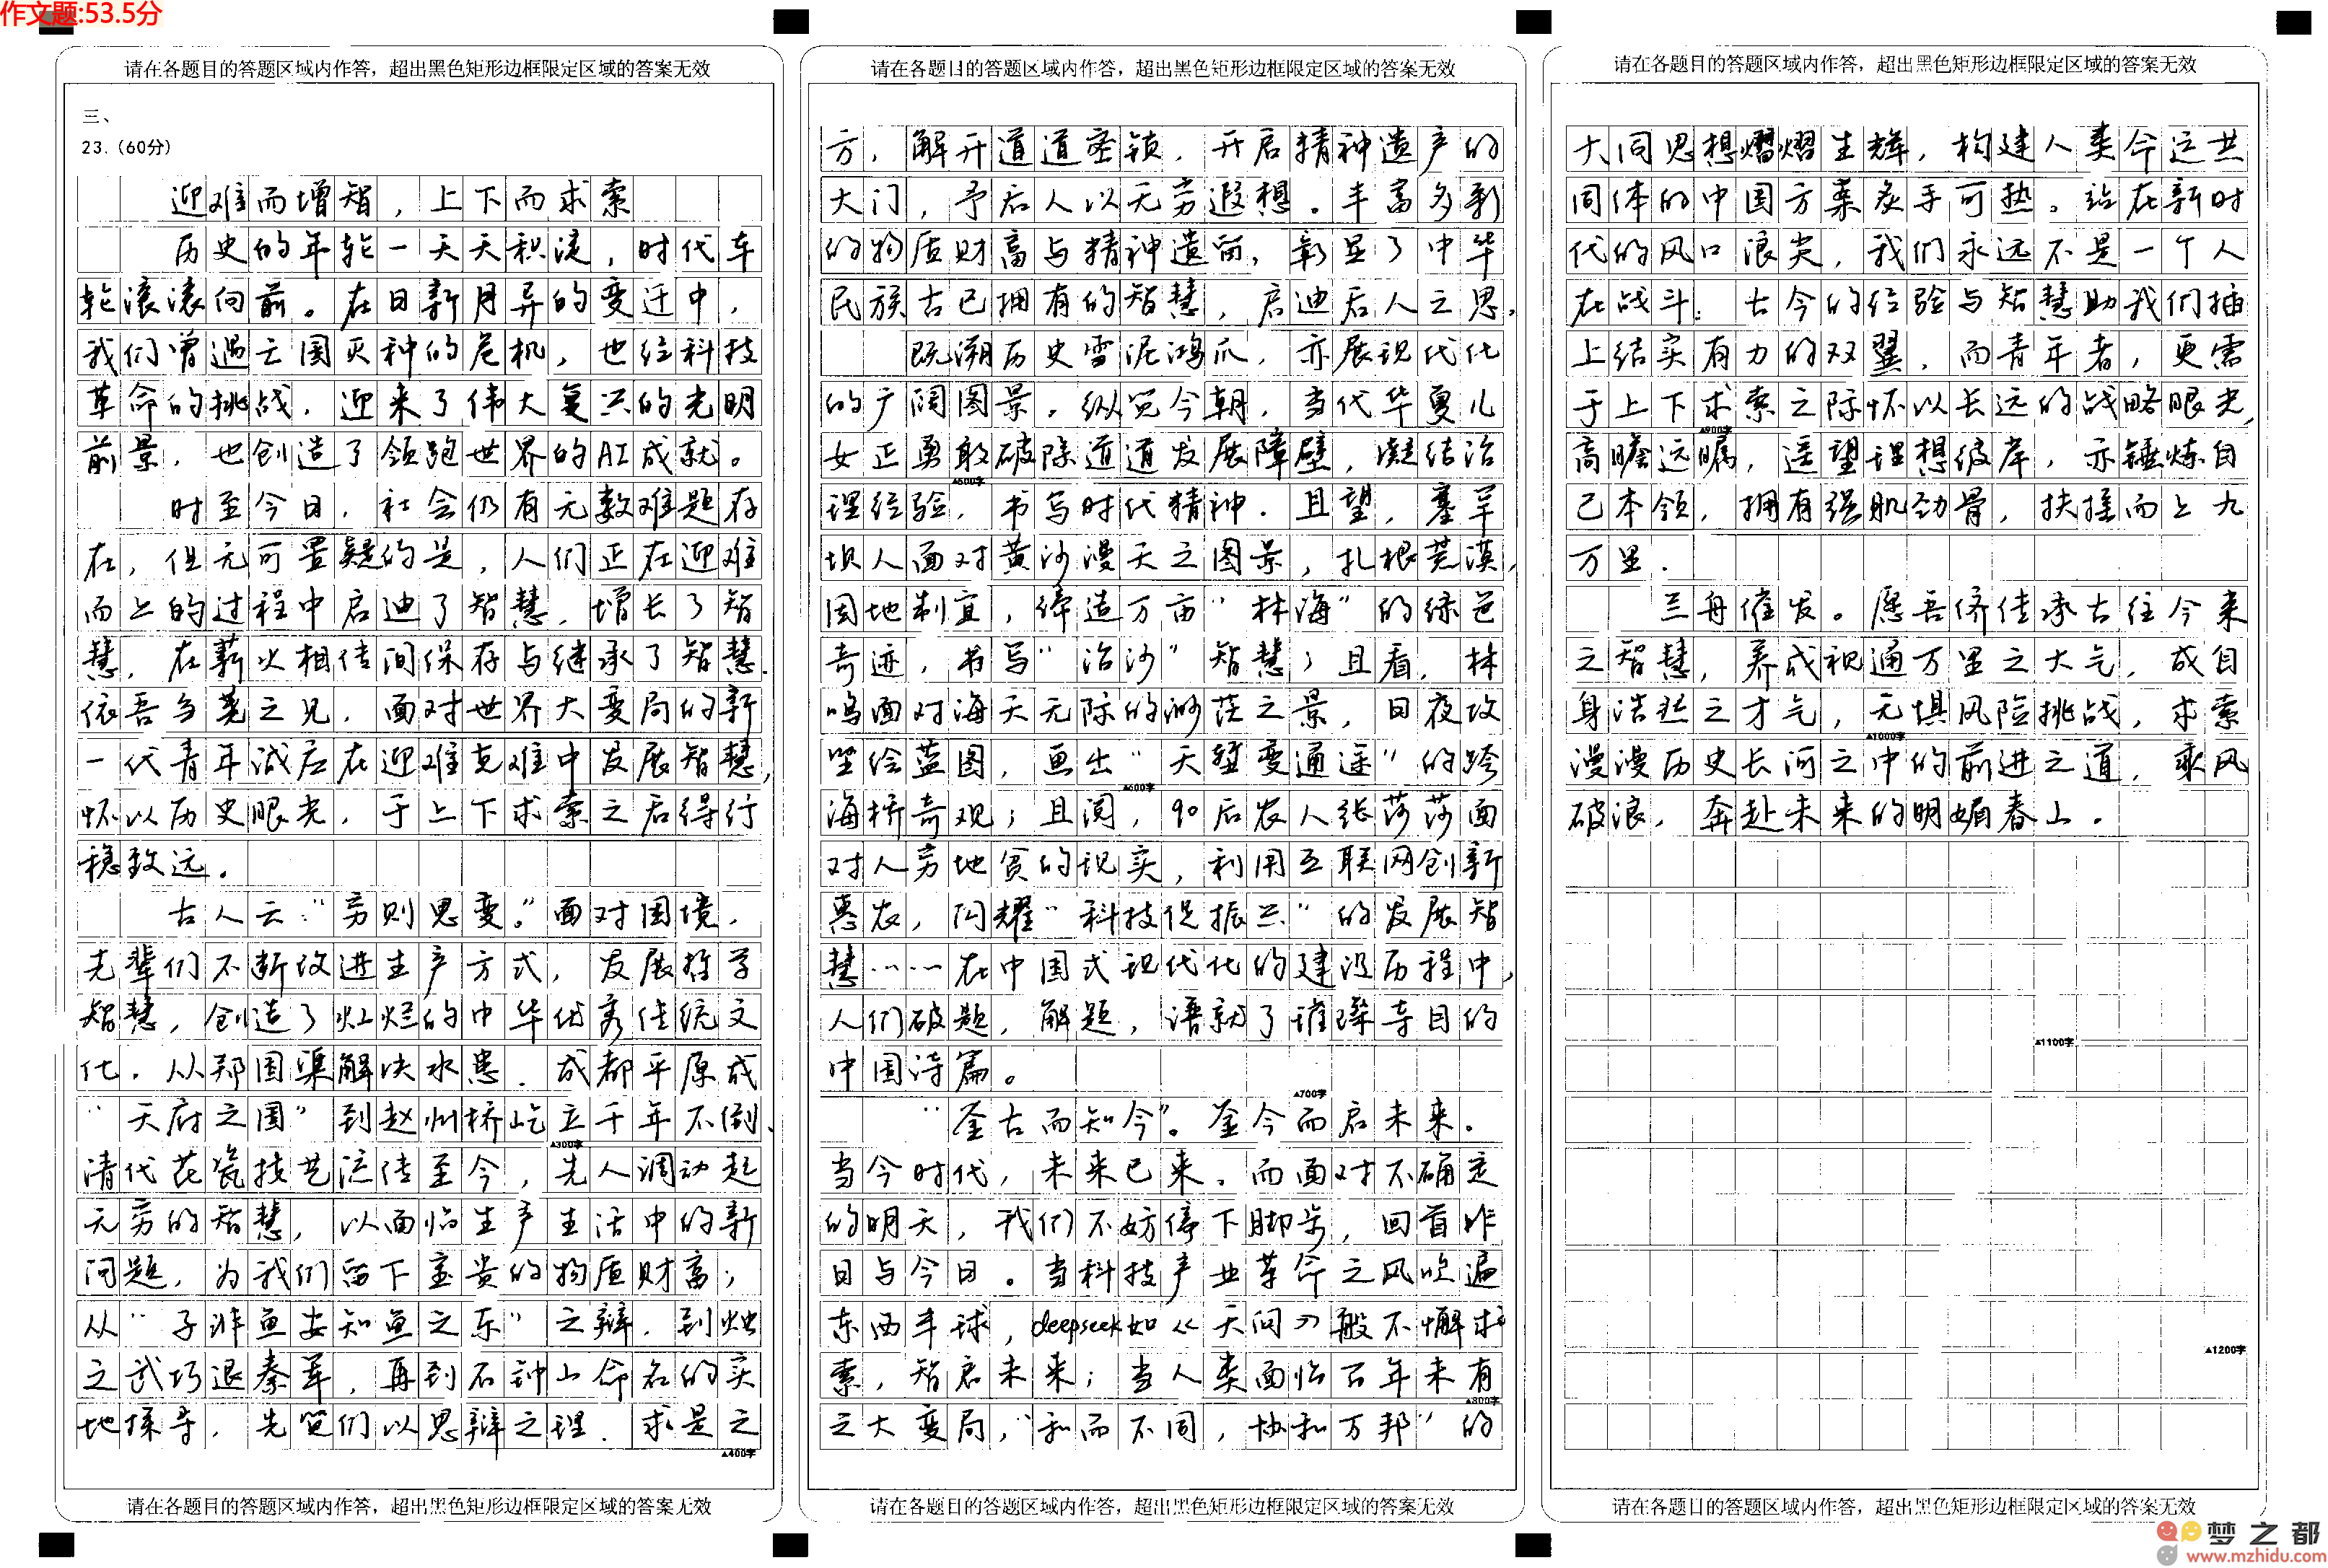 作文题:53.5分
请在各题目的答题区域内作答，超出黑色矩形边框限定区域的答案无效
三、
23.（60分）
迎难而增智，上下而求索
历史的年轮一天天积淀，时代车
轮滚滚向前。在日新月异的变迁中，
我们曾遇亡国灭种的危机，也经科技
革命的挑战，迎来了伟大复兴的光明
前景，也创造了领跑世界的AI成就。
时至今日，社会仍有无数难题存
在，但无可置疑的是，人们正在迎难
而上的过程中启迪了智慧，增长了智
慧，在薪火相传间保存与继承了智慧。
依吾刍荛之见，面对世界大变局的新
一代青年诚应在迎难克难中发展智慧，
怀以历史眼光，于上下求索之后得行
稳致远。
古人云："穷则思变。"面对困境，
先辈们不断改进生产方式，发展哲学
智慧，创造了灿烂的中华优秀传统文
化。从郑国渠解决水患、成都平原成
"天府之国"到赵州桥屹立千年不倒、
▲300字
清代花瓷技艺流传至今，先人调动起
无穷的智慧，以面临生产生活中的新
问题，为我们留下宝贵的物质财富；
从"子非鱼安知鱼之乐"之辩，到烛
之武巧退秦军，再到石钟山命名的实
地探寻，先贤们以思辩之理、求是之
▲400字
请在各题目的答题区域内作答，超出黑色矩形边框限定区域的答案无效
请在各题目的答题区域内作答，超出黑色矩形边框限定区域的答案无效
方，解开道道密锁，开启精神遗产的
大门，予后人以无穷遐想。丰富多彩
的物质财富与精神遗留，彰显了中华
民族古已拥有的智慧，启迪后人之思。
既溯历史雪泥鸿爪，亦展现代化
的广阔图景。纵览今朝，当代华夏儿
女正勇敢破除道道发展障壁，凝结治
▲500字
理经验，书写时代精神。且望，塞罕
坝人面对黄沙漫天之图景，扎根荒漠，
因地制宜，缔造万亩"林海"的绿色
奇迹，书写"治沙"智慧；且看，林
鸣面对海天无际的渺茫之景，日夜攻
坚绘蓝图，画出"天堑变通途"的跨
▲600字
海桥奇观；且阅，90后农人张莎莎面
对人穷地贫的现实，利用互联网创新
惠农，闪耀"科技促振兴"的发展智
慧……在中国式现代化的建设历程中，
人们破题，解题，谱就了璀璨夺目的
中国诗篇。
▲700字
"鉴古而知今"。鉴今而启未来。
当今时代，未来已来。而面对不确定
的明天，我们不妨停下脚步，回首昨
日与今日。当科技产业革命之风吹遍
东西半球，deepseek如《天问》般不懈求
索，智启未来；当人类面临百年未有
▲800字
之大变局，"和而不同，协和万邦"的
请在各题目的答题区域内作答，超出黑色矩形边框限定区域的答案无效
请在各题目的答题区域内作答，超出黑色矩形边框限定区域的答案无效
大同思想熠熠生辉，构建人类命运共
同体的中国方案炙手可热。站在新时
代的风口浪尖，我们永远不是一个人
在战斗：古今的经验与智慧助我们插
上结实有力的双翼，而青年者，更需
于上下求索之际怀以长远的战略眼光，
▲900字
高瞻远瞩，遥望理想彼岸，亦锤炼自
己本领，拥有强肌劲骨，扶摇而上九
万里。
兰舟催发。愿吾侪传承古往今来
之智慧，养成视通万里之大气，成自
身浩然之才气，无惧风险挑战，求索
▲1000字
漫漫历史长河之中的前进之道，乘风
破浪，奔赴未来的明媚春山。
▲1100字
▲1200字
请在各题目的答题区域内作答，超出黑色矩形边框限定区域的答案无效
梦之都
www.mzhidu.com